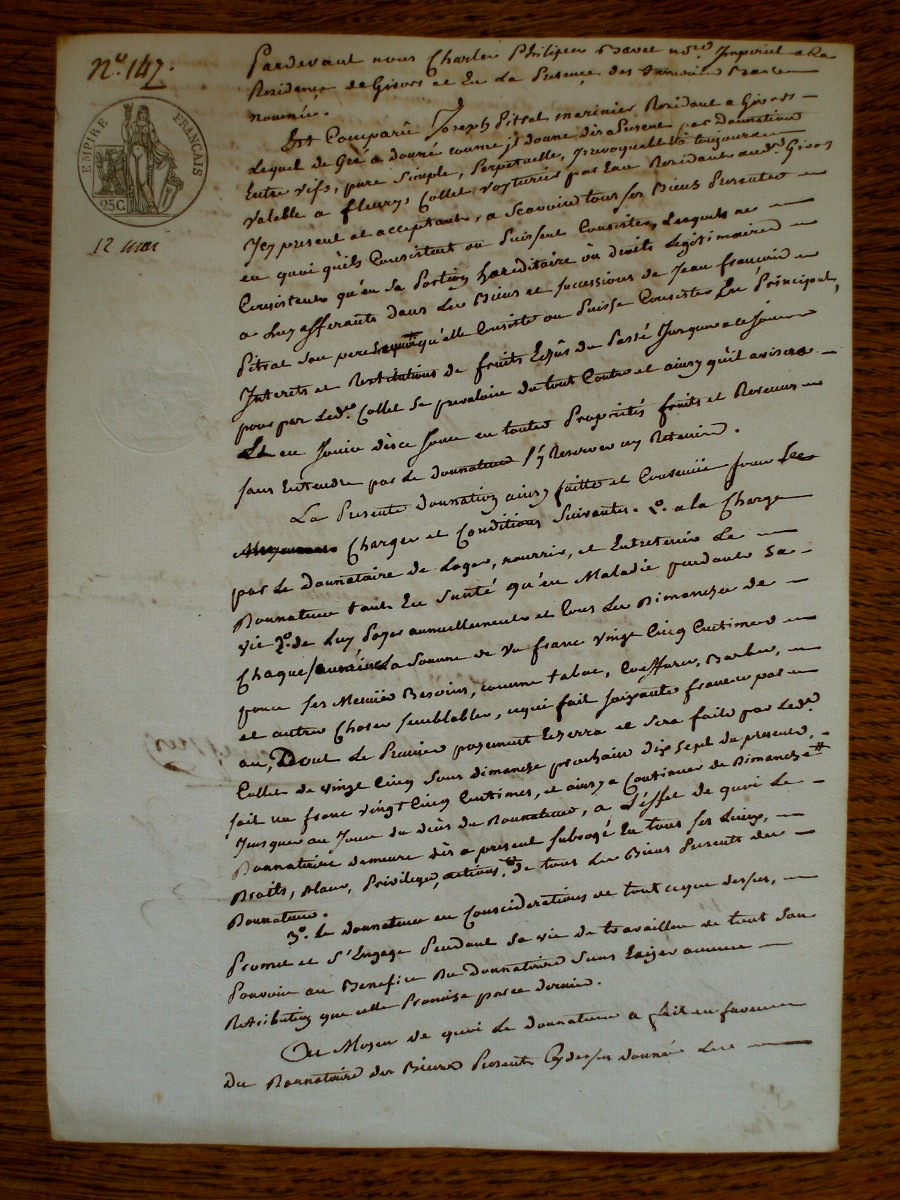 N.º 147.
EMPIRE FRANÇAIS
25 C.
12 mai
Pardevant nous Charles Philipes not.re Imperial a la
Residence de Givors et En La Presence des temoins
nommés.
Est Comparû Joseph Pitrat marinier Residant a Givors
Lequel de Gré a donné comme jl donne dès a Present par donnation
Entre vifs, pure Simple, Perpetuelle, jrrevoquable & toujours
valable a fleury Collet voyturier par Eau Residant aud.t Givors
Jcy present et acceptant, a Scavoir tous ses Biens Presents
en quoi qu'ils Consistent ou Puissent Consister, Lesquels ne
Consistent qu'en sa Portion hereditaire ou droits Legitimaires
a Luy afferants dans Les Biens et successions de Jean françois
Pitrat son pere qu'elle Consiste ou Puisse Consister En Principal,
Interets et Restitutions de fruits Echûs du Passé Jusques a ce Jour
pour par Led.t Collet se prevaloir du tout Contre et ainsy qu'il avisera
Et en Jouir dèsce Jour en toutes Propriétés fruits et Revenus
sans Entendre par Le donnateur s'y Reserver ny Retenir.
La Presente donnation ainsy faitte et Consentie sous Les
Charges et Conditions Suivantes. 1.º a la Charge
par Le Donnataire de Loger, nourrir, et Entretenir Le
Donnateur tant En Santé qu'en Maladie pendant Sa
vie 2.º de Luy Payer annuellement et tous Les Dimanches de
Chaque La Somme de un franc vingt Cinq Centimes
pour ses Menus Besoins, comme tabac, Coeffures, Barbier,
et autres Choses semblables, cequi fait soixante francs par
an, Dont Le Premier payement Echerra et sera fait par Led.t
Collet de vingt Cinq sous dimanche prochain dix sept du present,
soit un franc vingt Cinq Centimes, et ainsy a Continuer de Dimanche #
Jusques au Jour du décès du Donnateur, a L'effet de quoi Le
Donnataire demeure dès a present subrogé En tous ses Lieux,
Droits, place, Privileges, actions, de tous Les Biens Presents du
Donnateur.
3.º Le donnateur en Considerations de tout ceque dessus,
Promet et s'Engage Pendant sa vie de travailler de tout son
Pouvoir au Benefice Du donnataire sans Exiger aucune
Retribution que celle Promise par ce dernier.
Au Moyen de quoi Le donnateur a fait en faveur
Du Donnataire des Biens Presents Cydessus donnés Les